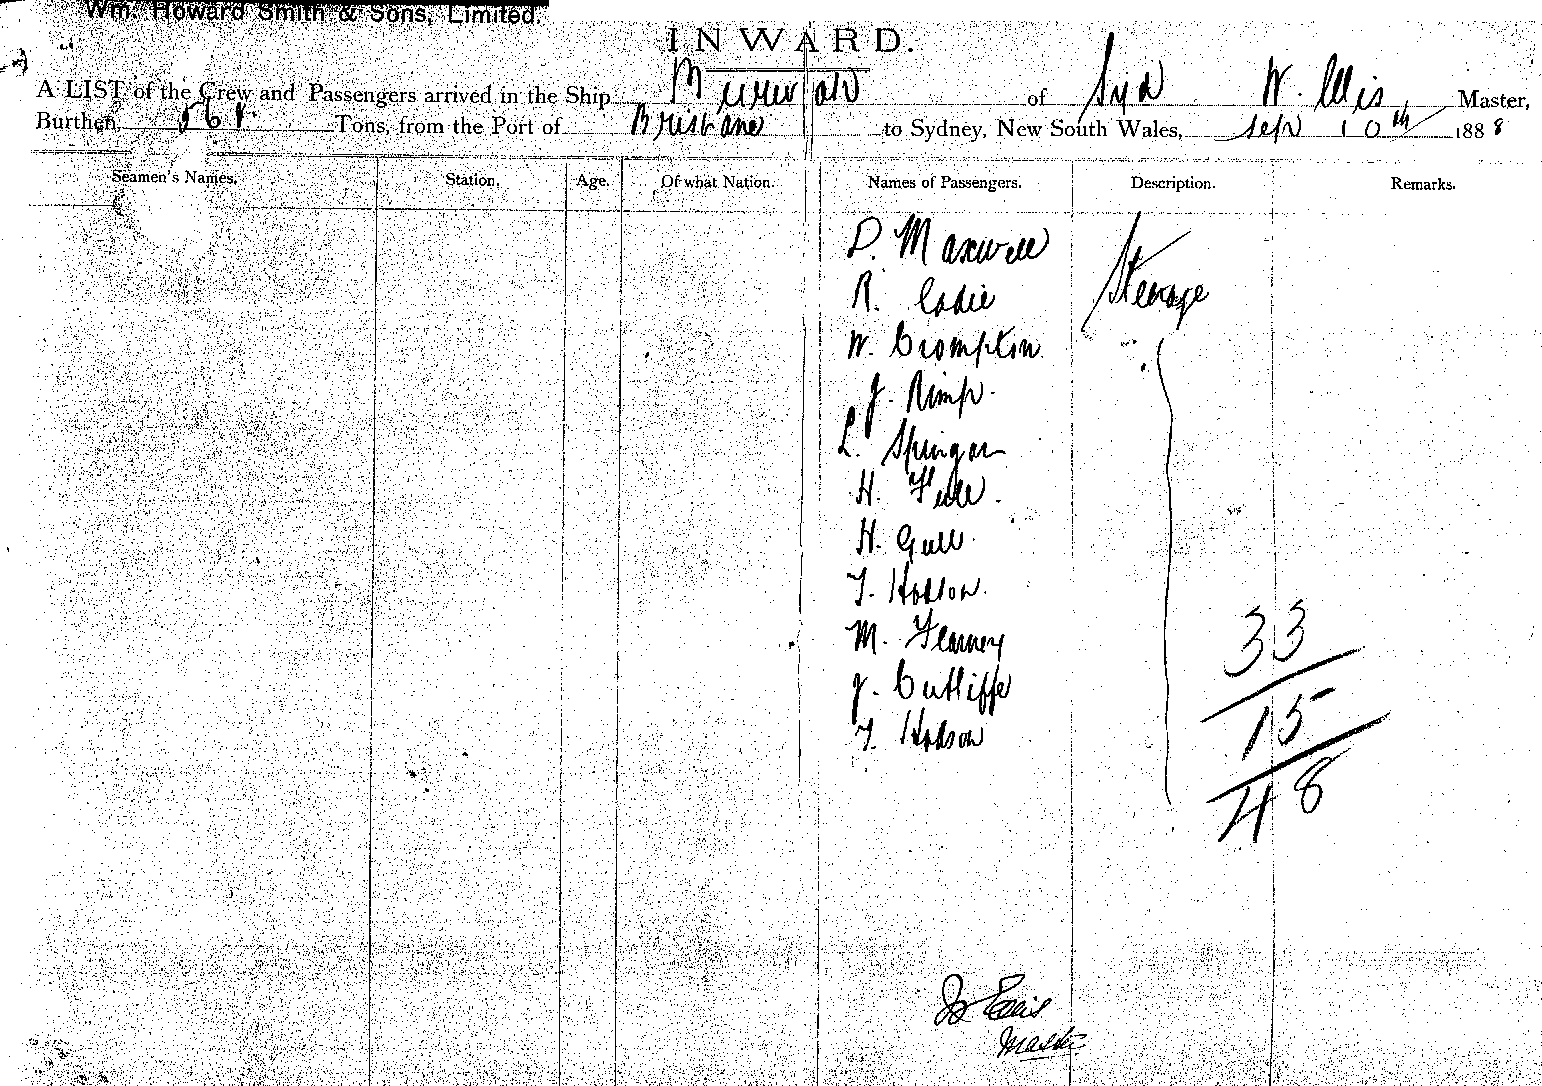 Wm. Howard Smith & Sons, Limited.
INWARD.
A LIST of the Crew and Passengers arrived in the Ship of Syd W. Ellis, Master,
Burthen, Tons, from the Port of Brisbane to Sydney, New South Wales, Sepr 10th 1888
Seamen's Names. Station. Age. Of what Nation. Names of Passengers. Description. Remarks.
D. Maxwell Steerage
R. Eadie
W. Crompton
J. Rimp.
L.
H.
H. Gull
T. Hodson.
M.
J. Cutliffe
T. Hodson
33
15
48
W Ellis
Master